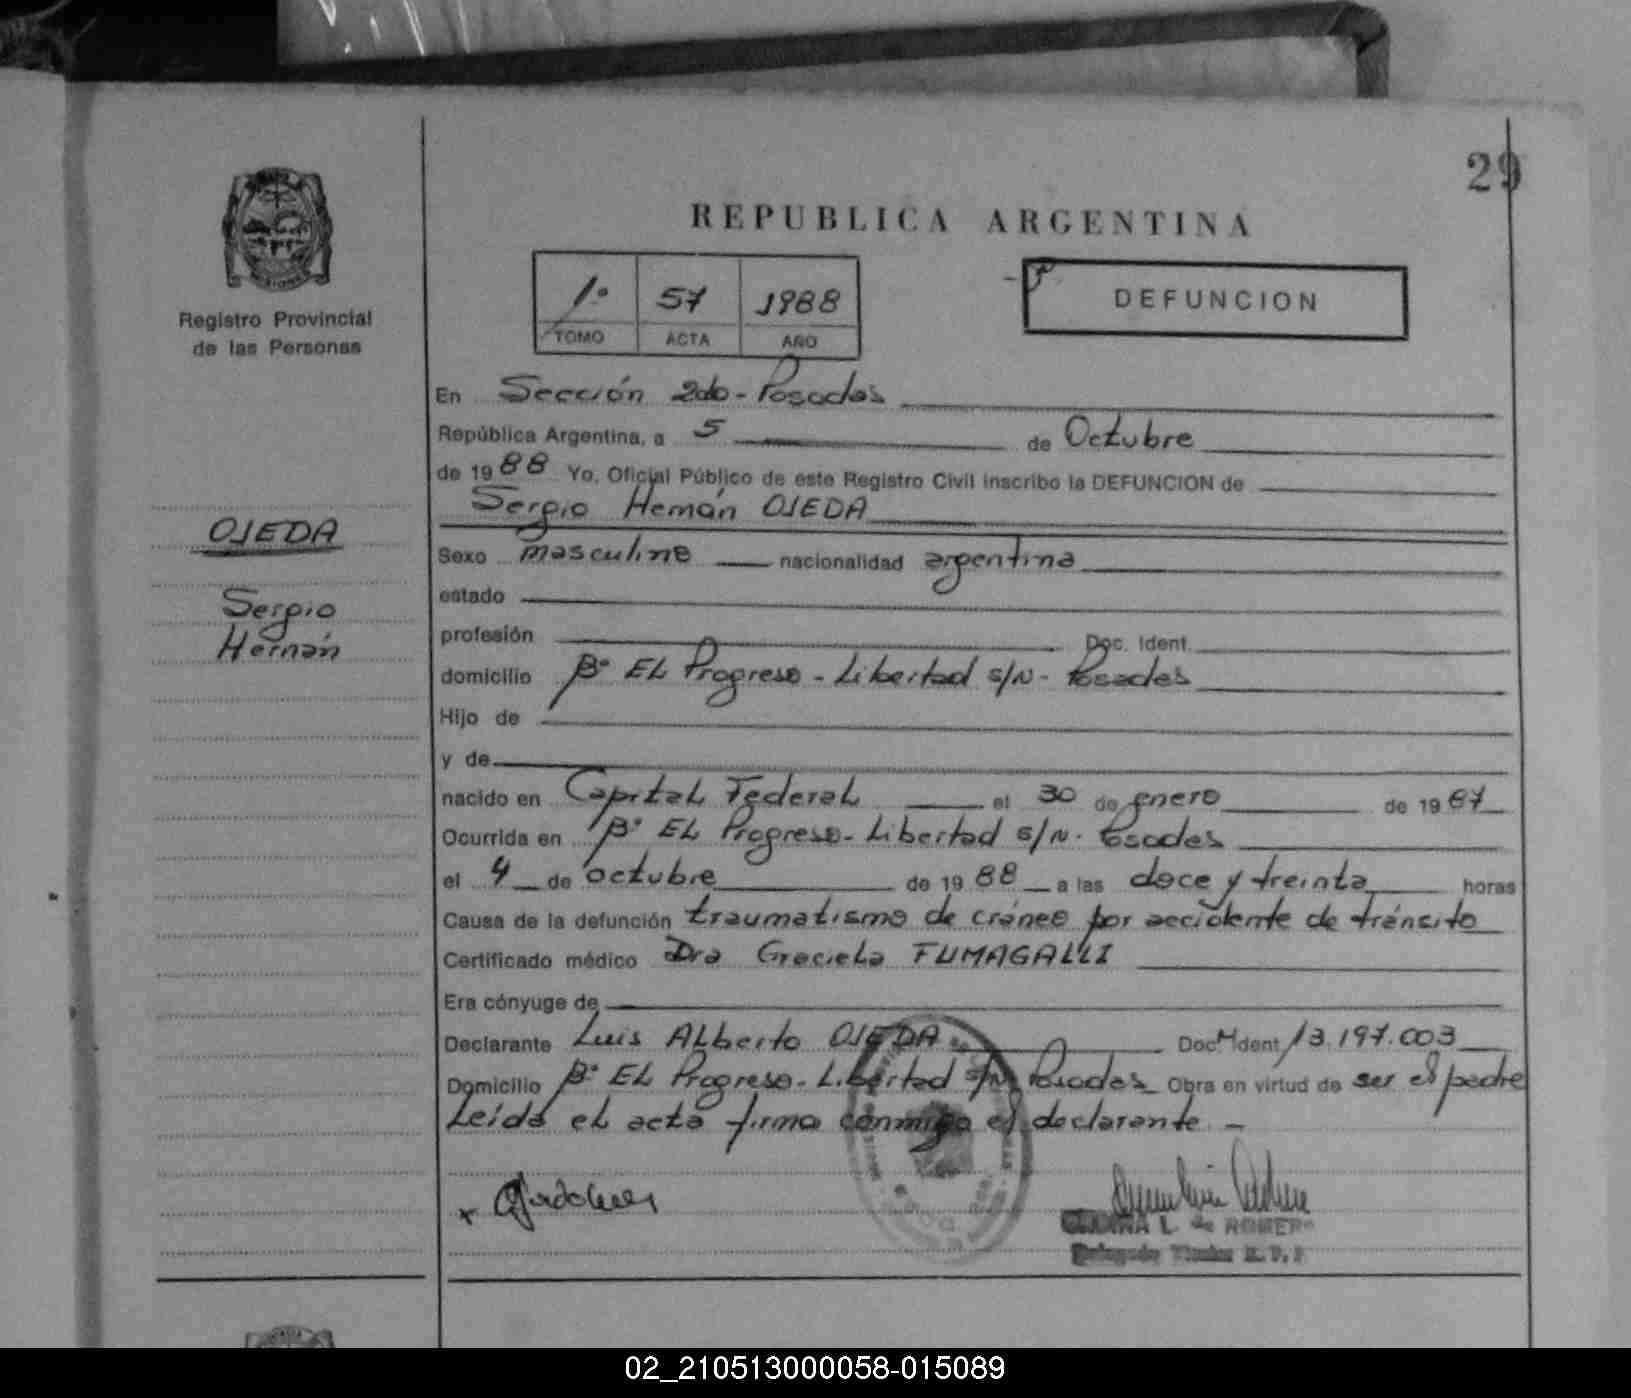 29
REPUBLICA ARGENTINA
1º 57 1988
TOMO ACTA AÑO
DEFUNCION
Registro Provincial
de las Personas
En Sección 2do - Posadas
República Argentina, a 5 de Octubre
de 1988 Yo, Oficial Público de este Registro Civil inscribo la DEFUNCION de
Sergio Hernán OJEDA
OJEDA
Sergio
Hernán
Sexo masculino nacionalidad argentina
estado
profesión Doc. Ident.
domicilio Bº EL Progreso - Libertad s/N - Posadas
Hijo de
y de
nacido en Capital Federal el 30 de enero de 1987
Ocurrida en Bº EL Progreso - Libertad s/N - Posadas
el 4 de octubre de 1988 a las doce y treinta horas
Causa de la defunción traumatismo de cráneo por accidente de tránsito
Certificado médico Dra Graciela FUMAGALLI
Era cónyuge de
Declarante Luis ALberto OJEDA Doc. Ident 13.197.003
Domicilio Bº EL Progreso - Libertad s/N Posadas Obra en virtud de ser el padre
Leída el acta firma conmigo el declarante -
L. de ROMERO
02_210513000058-015089